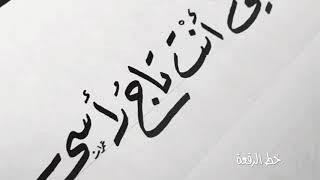 أَنْتَ تَاج رَأسي
خط الرقعة